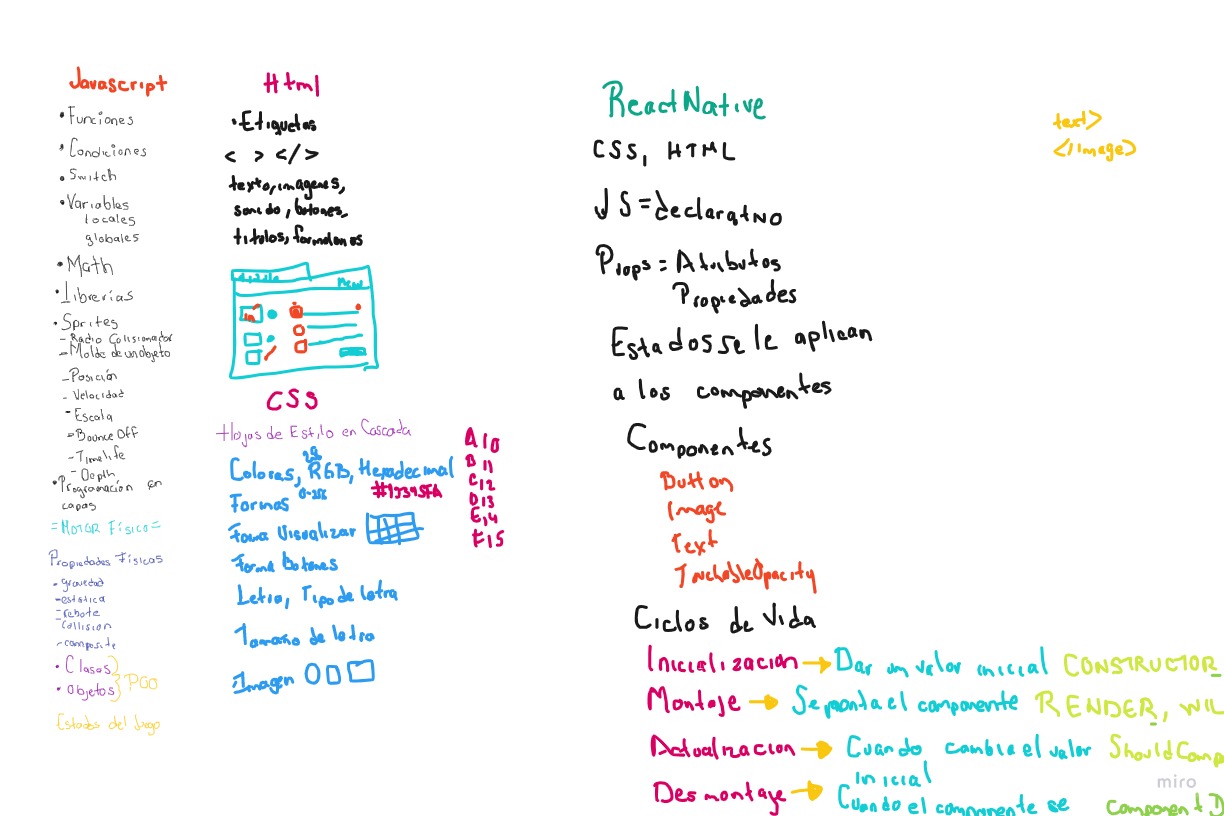 Javascript
• Funciones
• Condiciones
• Switch
• Variables
locales
globales
• Math
• librerías
• Sprites
- Radio Colisionador
- Molde de un objeto
- Posición
- Velocidad
- Escala
- Bounce Off
- Timelife
- Depth
• Programación en
capas
= MOTOR Físico =
Propiedades Físicas
- gravedad
- estática
- rebote
- Collision
- composite
• Clases
• Objetos
POO
Estados del Juego
Html
• Etiquetas
< > </>
texto, imagenes,
sonido, botones,
titulos,
CSS
Hojas de Estilo en Cascada
Colores, RGB, Hexadecimal
0-256
Formas
Forma Visualizar
Forma Botones
Letra, Tipo de letra
Tamaño de letra
Imagen
A 10
B 11
C 12
D 13
E 14
F 15
ReactNative
CSS, HTML
JS = declarativo
Props = Atributos
Propiedades
Estados se le aplican
a los componentes
Componentes
Button
Image
Text
TouchableOpacity
Ciclos de Vida
Inicialización → Dar un valor inicial CONSTRUCTOR
Montaje → Se monta el componente RENDER, WIL
Actualización → Cuando cambia el valor ShouldComp
inicial
Desmontaje → Cuando el componente se componentD
text>
</Image>
miro